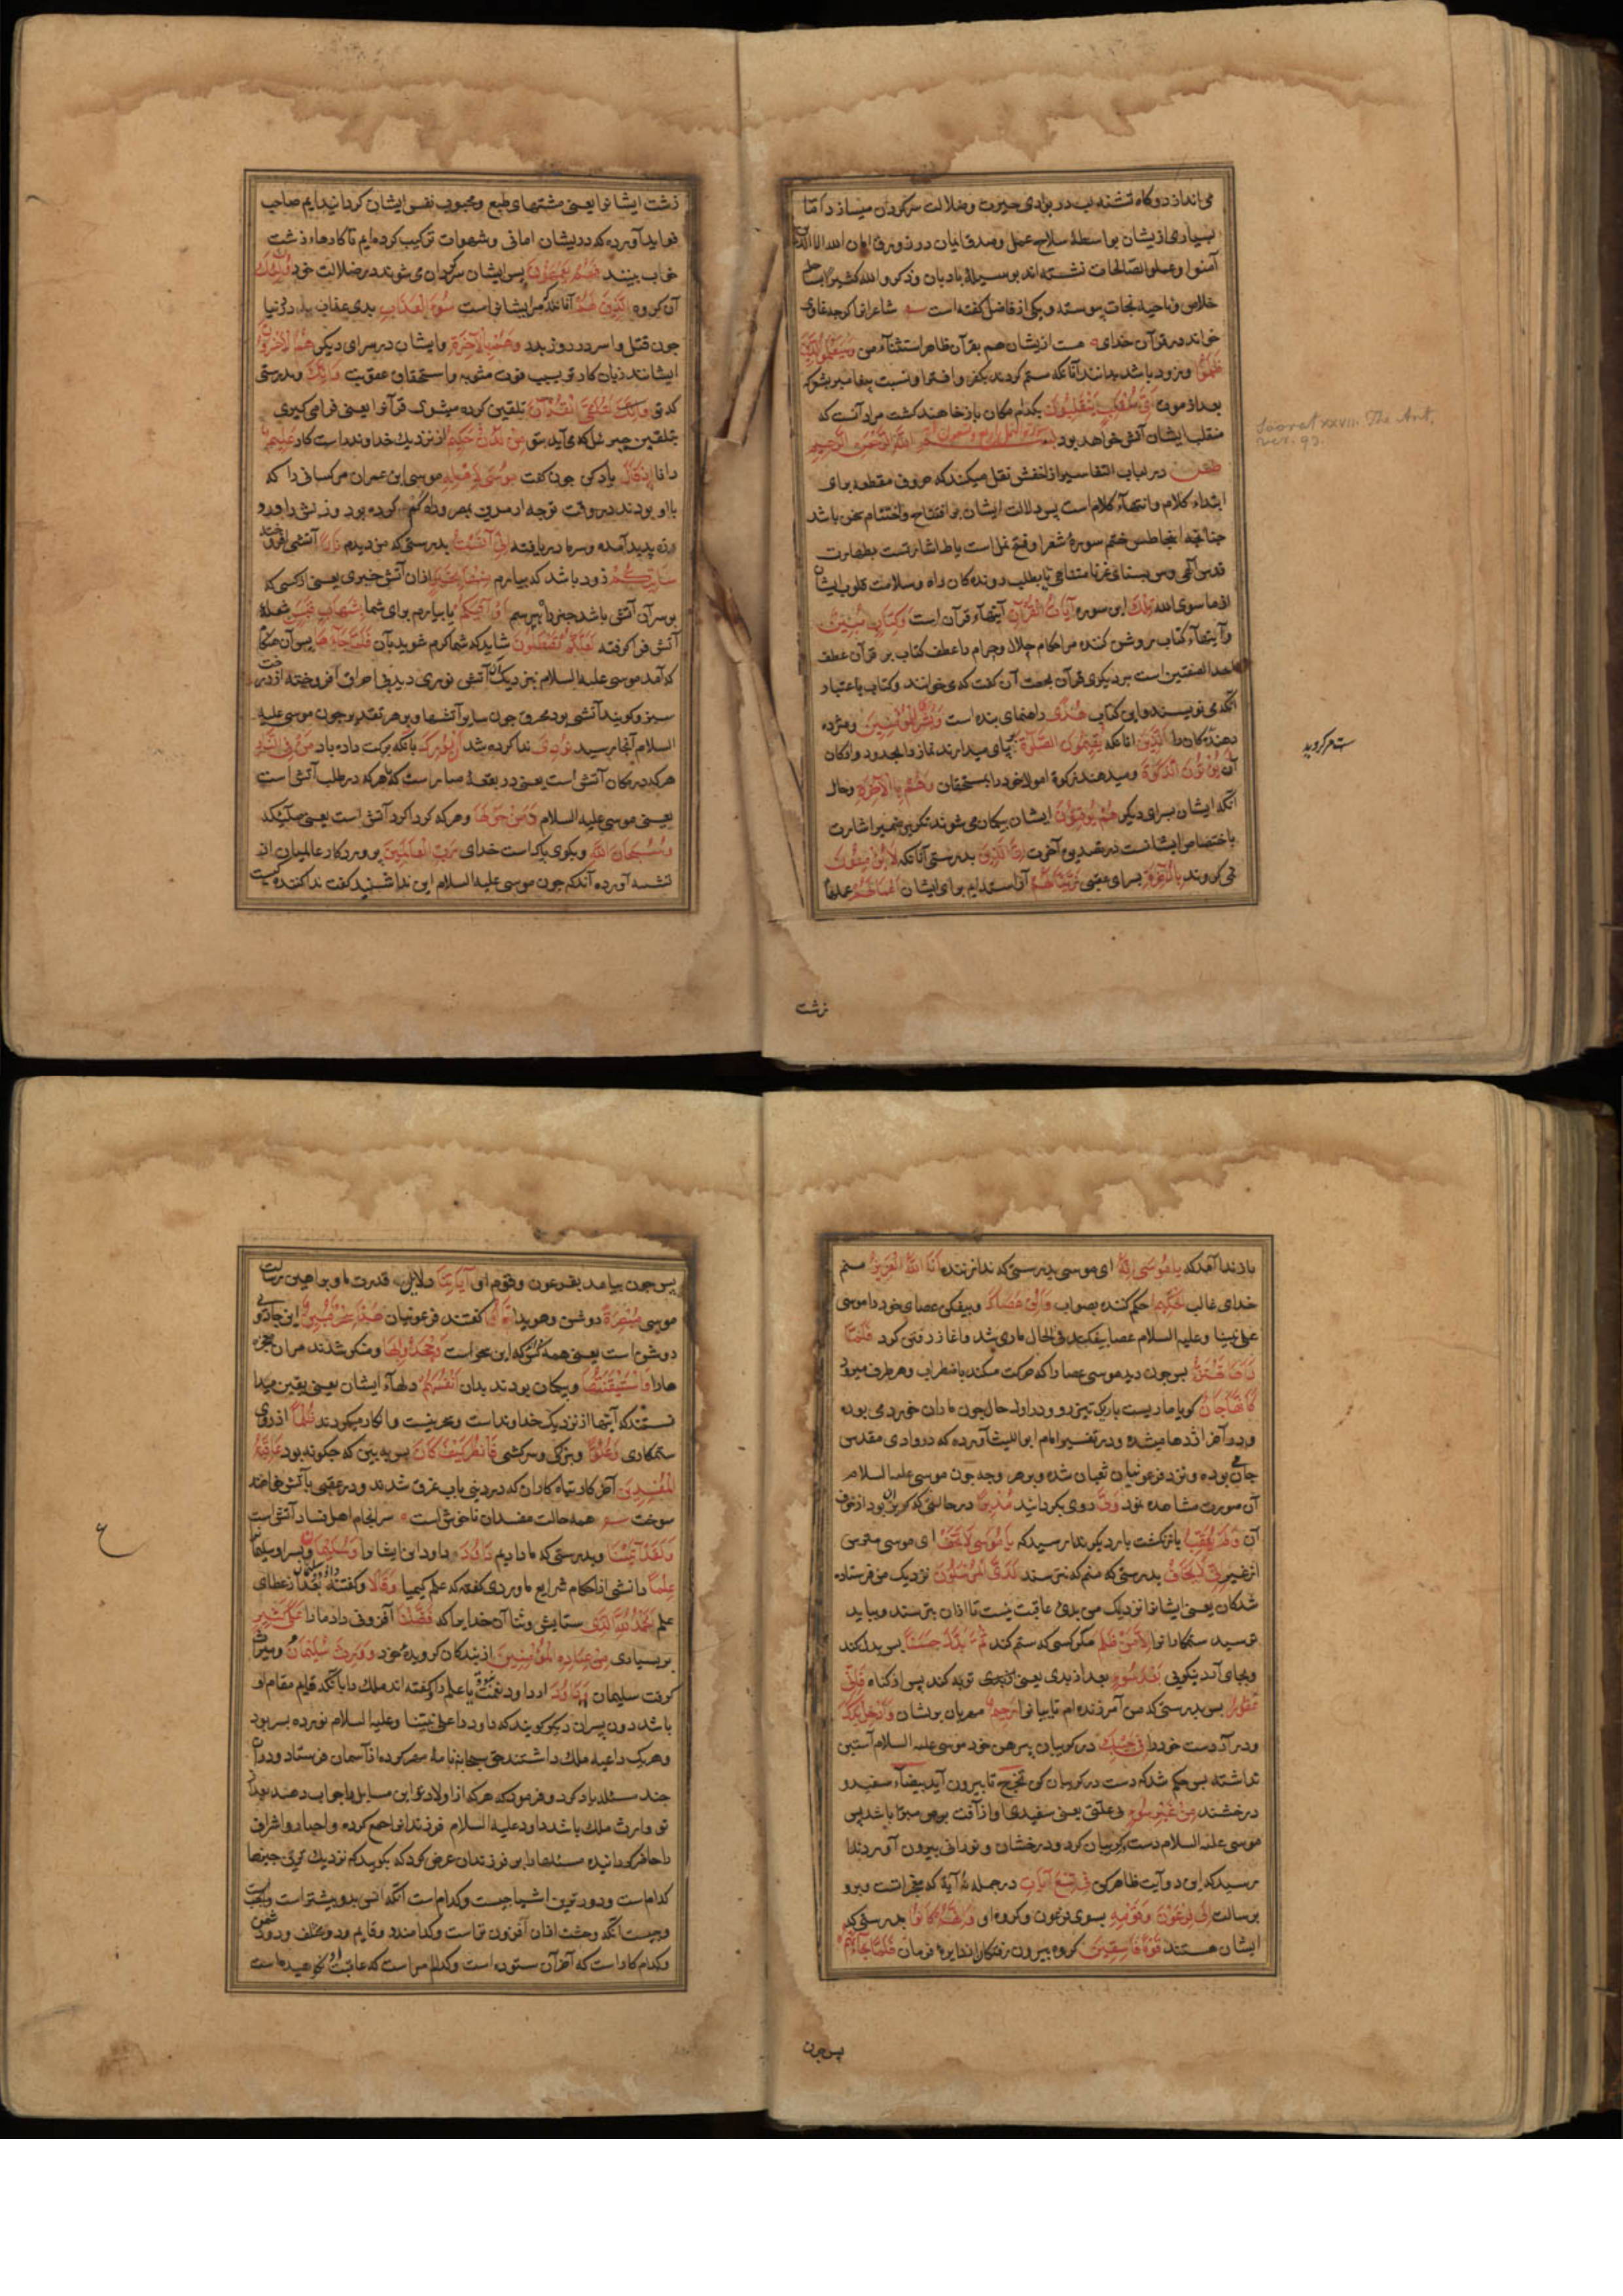 می‌اندازد و گاه تشنه لب در بوادی حیرت و ضلالت سرگردان میسازد اما
بسیاری ازیشان بواسطهٔ سلاح عمل و صدق ایمان در زورق امان الله الا الذین
آمنوا وعملوا الصالحات نشسته‌اند بوسیلهٔ بادبان وذکروا الله کثیرا بساحل
خلاص و ناحیه نجات پیوسته و یکی از فاضل گفته است شاعرانرا کرچه غاوی
خواند در قرآن خدای هست ازیشان هم بقرآن ظاهر استثناء من وَسَیَعْلَمُ الَّذِینَ
ظَلَمُوا و زود باشد بدانند آنانکه ستم کردند بکفر و افترا و نسبت پیغامبر بشعر که
بعد از مردن اَیَّ مُنْقَلَبٍ یَنْقَلِبُونَ بکدام مکان باز خاهند کشت مراد آنست که
منقلب ایشان آتش خواهد بود بِسْمِ اللهِ الرَّحْمنِ الرَّحِیمِ
طس در لباب التفاسیر از اخفش نقل میکند که حروف مقطعه برای
ابتداء کلام و انتهاء کلام است پس دلالت ایشان بر افتتاح و اختتام سخن باشد
چنانچه اینجا طس ختم سورهٔ شعرا و فتح نمل است یا طا اشارتست بطهارت
قدس الهی و سین بسنای عز نامتناهی یا بطلب روندکان راه و سلامت قلوب ایشان
از ما سوی الله تِلْکَ این سوره آیَاتُ الْقُرْآنِ آیتهاء قرآن است وَکِتَابٍ مُبِینٍ
و آیتهاء کتاب روشن کننده مر احکام حلال و حرام را عطف کتاب بر قرآن عطف
احد الصفتین است بر دیکری قرآن بجهت آن کفت که می‌خوانند و کتاب باعتبار
آنکه می‌نویسند و این کتاب هُدًی راهنمای بنده است وَبُشْرَی لِلْمُؤْمِنِینَ و مژده
دهنده کان را الَّذِینَ آنانکه یُقِیمُونَ الصَّلٰوةَ بپای میدارند نماز را بحدود و ارکان
آن یُؤْتُونَ الزَّکٰوةَ و میدهند زکوة اموال خود را بمستحقان وَهُمْ بِالْآخِرَةِ و حال
آنکه ایشان بسرای دیکر هُمْ یُوقِنُونَ ایشان بیکمان می‌شوند تکریر ضمیر اشارت
باختصاص ایشانست در تصدیق آخرت اِنَّ الَّذِینَ بدرستی آنانکه لَا یُؤْمِنُونَ
نمی‌کروند بِالْآخِرَةِ بسرای عقبی زَیَّنَّا لَهُمْ آراسته‌ایم برای ایشان اَعْمَالَهُمْ عملهاء
زشت
Soorat xxvii. The Ant.
زشت ایشانرا یعنی مشتهای طبع و محبوب نفس ایشان کردانیدیم صاحب
فواید آورده که در ایشان امانی و شهوات ترکیب کرده‌ایم تا کارهاء زشت
خاب بینند فَهُمْ یَعْمَهُونَ پس ایشان سرکردان می‌شوند در ضلالت خود اُولٰئِکَ
آن کروه الَّذِینَ لَهُمْ آنانند که مر ایشانراست سُوءُ الْعَذَابِ بدی عذاب در دنیا
چون قتل و اسر در روز بدر وَهُمْ فِی الْآخِرَةِ و ایشان در سرای دیکر هُمُ الْاَخْسَرُونَ
ایشانند زیان کارتر بسبب فوت مثوبه و استحقاق عقوبت وَاِنَّکَ و بدرستی
که تو لَتُلَقَّی الْقُرْآنَ تلقین کرده میشوی قرآنرا یعنی فرا می‌کیری
بتلقین جبرئیل که می‌آید بتو مِنْ لَدُنْ حَکِیمٍ از نزدیک خداوند راست کار عَلِیمٍ
دانا اِذْ قَالَ یاد کن چون کفت مُوسَی لِاَهْلِهِ موسی ابن عمران مر کسانی را که
با او بودند در وقت توجه از مدین بمصر و راه کم کرده بود و زنش را درد
زه پدید آمده و سرما دریافته اِنِّی آنَسْتُ بدرستی که من دیدم نَارًا آتشی افروخته
سَآتِیکُمْ زود باشد که بیارم مِنْهَا بِخَبَرٍ از آن آتش خبری یعنی از کسی که
بر سر آن آتش باشد خبر راه پرسم اَوْ آتِیکُمْ یا بیارم برای شما بِشِهَابٍ قَبَسٍ شعلهٔ
آتش فرا کرفته لَعَلَّکُمْ تَصْطَلُونَ شاید که شما کرم شوید بآن فَلَمَّا جَاءَهَا پس آن هنکام
که آمد موسی علیه السلام نزدیک آن آتش نوری دید بی احراق افروخته از درخت
سبز و کویند آتشی بود محرق چون سایر آتشها و بر هر تقدیر چون موسی علیه
السلام آنجا رسید نُودِیَ ندا کرده شد اَنْ بُورِکَ بآنکه برکت داده باد مَنْ فِی النَّارِ
هر که در مکان آتش است یعنی در بقعهٔ مبارکست که یا هر که در طلب آتش است
یعنی موسی علیه السلام وَمَنْ حَوْلَهَا و هر که کرداکرد آتش است یعنی ملائکه
وَسُبْحَانَ اللهِ و بکوی پاک است خدای رَبِّ الْعَالَمِینَ پروردکار عالمیان از
تتمه آورده آنکه چون موسی علیه السلام این ندا شنید کفت ندا کننده کیست
باز ندا آمد که یَا مُوسَی اِنَّهُ ای موسی بدرستی که ندا زننده اَنَا اللهُ الْعَزِیزُ منم
خدای غالب الْحَکِیمُ حکم کننده بصواب وَاَلْقِ عَصَاکَ و بیفکن عصای خود را موسی
علی نبینا وعلیه السلام عصا بیفکند فی الحال ماری شد و اغاز رفتن کرد فَلَمَّا
رَآهَا تَهْتَزُّ پس چون دید موسی عصا را که حرکت میکند باضطراب و هر طرف میرود
کَاَنَّهَا جَانٌّ کویا ماریست باریک تیزرو و در اول حال چون ماران خورد می بوده
و در آخر اژدها میشده و در تفسیر امام ابو اللیث آورده که در وادی مقدس
جان بوده و نزد فرعونیان ثعبان شده و بر هر وجه چون موسی علیه السلام
آن صورت مشاهده نمود وَلَّی روی بکردانید مُدْبِرًا در حالتی که کریزان بود از خوف
آن وَلَمْ یُعَقِّبْ باز نکشت بار دیکر ندا رسید که یَا مُوسَی لَا تَخَفْ ای موسی مترس
از غیر من اِنِّی لَا یَخَافُ بدرستی که منم که نترسند لَدَیَّ الْمُرْسَلُونَ نزدیک من فرستاده
شدکان یعنی ایشانرا نزدیک من بدی عاقبت نیست تا از آن بترسند و بباید
ترسید ستمکارانرا اِلَّا مَنْ ظَلَمَ مکر کسی که ستم کند ثُمَّ بَدَّلَ حُسْنًا پس بدل کند
و بجای آرد نیکویی بَعْدَ سُوءٍ بعد از بدی یعنی توبه کند پس از کناه فَاِنِّی
غَفُورٌ پس بدرستی که من آمرزنده‌ام تایبانرا رَحِیمٌ مهربان بریشان وَاَدْخِلْ یَدَکَ
و در آر دست خود را فِی جَیْبِکَ در کریبان پیرهن خود موسی علیه السلام آستین
نداشته پس حکم شد که دست در کریبان کن تَخْرُجْ تا بیرون آید بیضاء سفید و
درخشنده مِنْ غَیْرِ سُوءٍ بی علتی یعنی سفیدی او از آفت برص مبرا باشد پس
موسی علیه السلام دست در کریبان کرد و درخشان و نورانی بیرون آورد ندا
رسید که این دو آیت ظاهر کن فِی تِسْعِ آیَاتٍ در جمله نه آیة که معجزاتست و برو
برسالت اِلَی فِرْعَوْنَ وَقَوْمِهِ بسوی فرعون و کروه او اِنَّهُمْ کَانُوا بدرستی که
ایشان هستند قَوْمًا فَاسِقِینَ کروه بیرون رفتکان از دایرهٔ فرمان فَلَمَّا جَاءَتْهُمْ
پس چون
پس چون بیامد بفرعون و قوم او آیَاتُنَا دلایل قدرت ما و براهین رسالت
موسی مُبْصِرَةً روشن و هویدا قَالُوا کفتند فرعونیان هَذَا سِحْرٌ مُبِینٌ این جادوی
روشن است یعنی همه کس که این سحر است وَجَحَدُوا بِهَا و منکر شدند مر آن معجزه
هارا وَاسْتَیْقَنَتْهَا و بیکمان بودند بدان اَنْفُسُهُمْ دلهاء ایشان یعنی یقین میدا
نستند که آیتها از نزدیک خداونداست و سحر نیست و انکار میکردند ظُلْمًا از روی
ستمکاری وَعُلُوًّا و بزرکی و سرکشی فَانْظُرْ کَیْفَ کَانَ پس به بین که چکونه بود عَاقِبَةُ
الْمُفْسِدِینَ آخر کار تباه کاران که در دنیی بآب غرق شدند و در عقبی بآتش خواهند
سوخت همه حالت مفسدان ناخوش است سرانجام اهل فساد آتش است
وَلَقَدْ آتَیْنَا و بدرستی که ما دادیم دَاوُدَ داود ابن ایشا را وَسُلَیْمَانَ و پسر او سلیمانرا
عِلْمًا دانشی از احکام شرایع ماوردی کفته که علم کیمیا وَقَالَا و کفتند داود و سلیمان بعد از عطای
علم الْحَمْدُ لِلّٰهِ الَّذِی ستایش و ثنا آن خدایرا که فَضَّلَنَا آفزونی داد مارا عَلَی کَثِیرٍ
بر بسیاری مِنْ عِبَادِهِ الْمُؤْمِنِینَ از بندکان کرویدهٔ خود وَوَرِثَ سُلَیْمَانُ و میراث
کرفت سلیمان دَاوُدَ از داود نبوت یا علم را و کفته‌اند ملک را بآنکه قایم مقام او
باشد دون پسران دیکر کویند که داود را علی نبینا وعلیه السلام نوزده پسر بود
و هر یک داعیه ملک داشتند حق سبحانه نامهٔ مهر کرده از آسمان فرستاد و در آن
چند مسئله یاد کرد و فرمود که هر که از اولاد تو این مسایل را جواب دهد بعد از
تو وارث ملک باشد داود علیه السلام فرزندانرا جمع کرده و احبار و اشراف
را حاضر کردانیده مسئلها را بر فرزندان عرض کرد که بکویید که نزدیک ترین چیزها
کدام است و دورترین اشیا چیست و کدام است آنکه انس بدو بیشتر است و
و چیست آنکه وحشت از آن افزون تر است و کدامند دو قایم و دو مختلف و دو دشمن
و کدام کار است که آخر آن ستوده است و کدام امر است که عاقبت او نکوهیده است